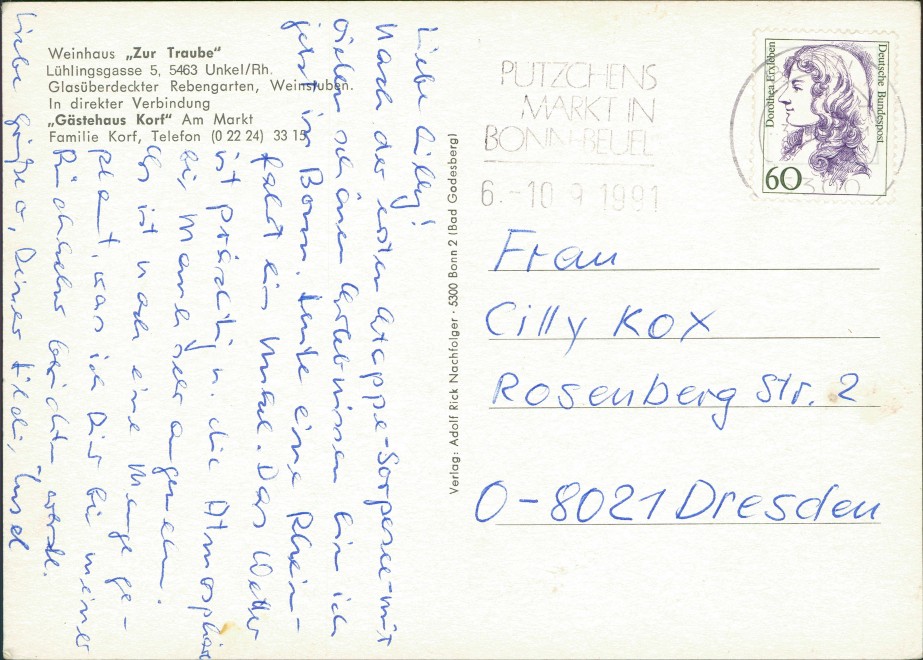 Weinhaus „Zur Traube“
Lühlingsgasse 5, 5463 Unkel/Rh.
Glasüberdeckter Rebengarten, Weinstuben.
In direkter Verbindung
„Gästehaus Korf“ Am Markt
Familie Korf, Telefon (0 22 24) 33 15
Liebe Cilly!
Nach der ersten Etappe-Sorpesee-mit
vielen schönen Erlebnissen bin ich
jetzt in Bonn. Heute eine Rhein-
fahrt ein Muß. Das Wetter
ist prächtig u. die Atmosphäre
bei Manh sehr angenehm.
Es ist noch eine Menge ge-
plant, was ich Dir bei meiner
Rückkehr berichten werde.
Liebe Grüße, Deine
Verlag: Adolf Rick Nachfolger · 5300 Bonn 2 (Bad Godesberg)
PÜTZCHENS
MARKT IN
BONN-BEUEL
6.-10 9 1991
Dorothea Erxleben
Deutsche Bundespost
60
5300
Frau
Cilly Kox
Rosenberg Str. 2
O-8021 Dresden